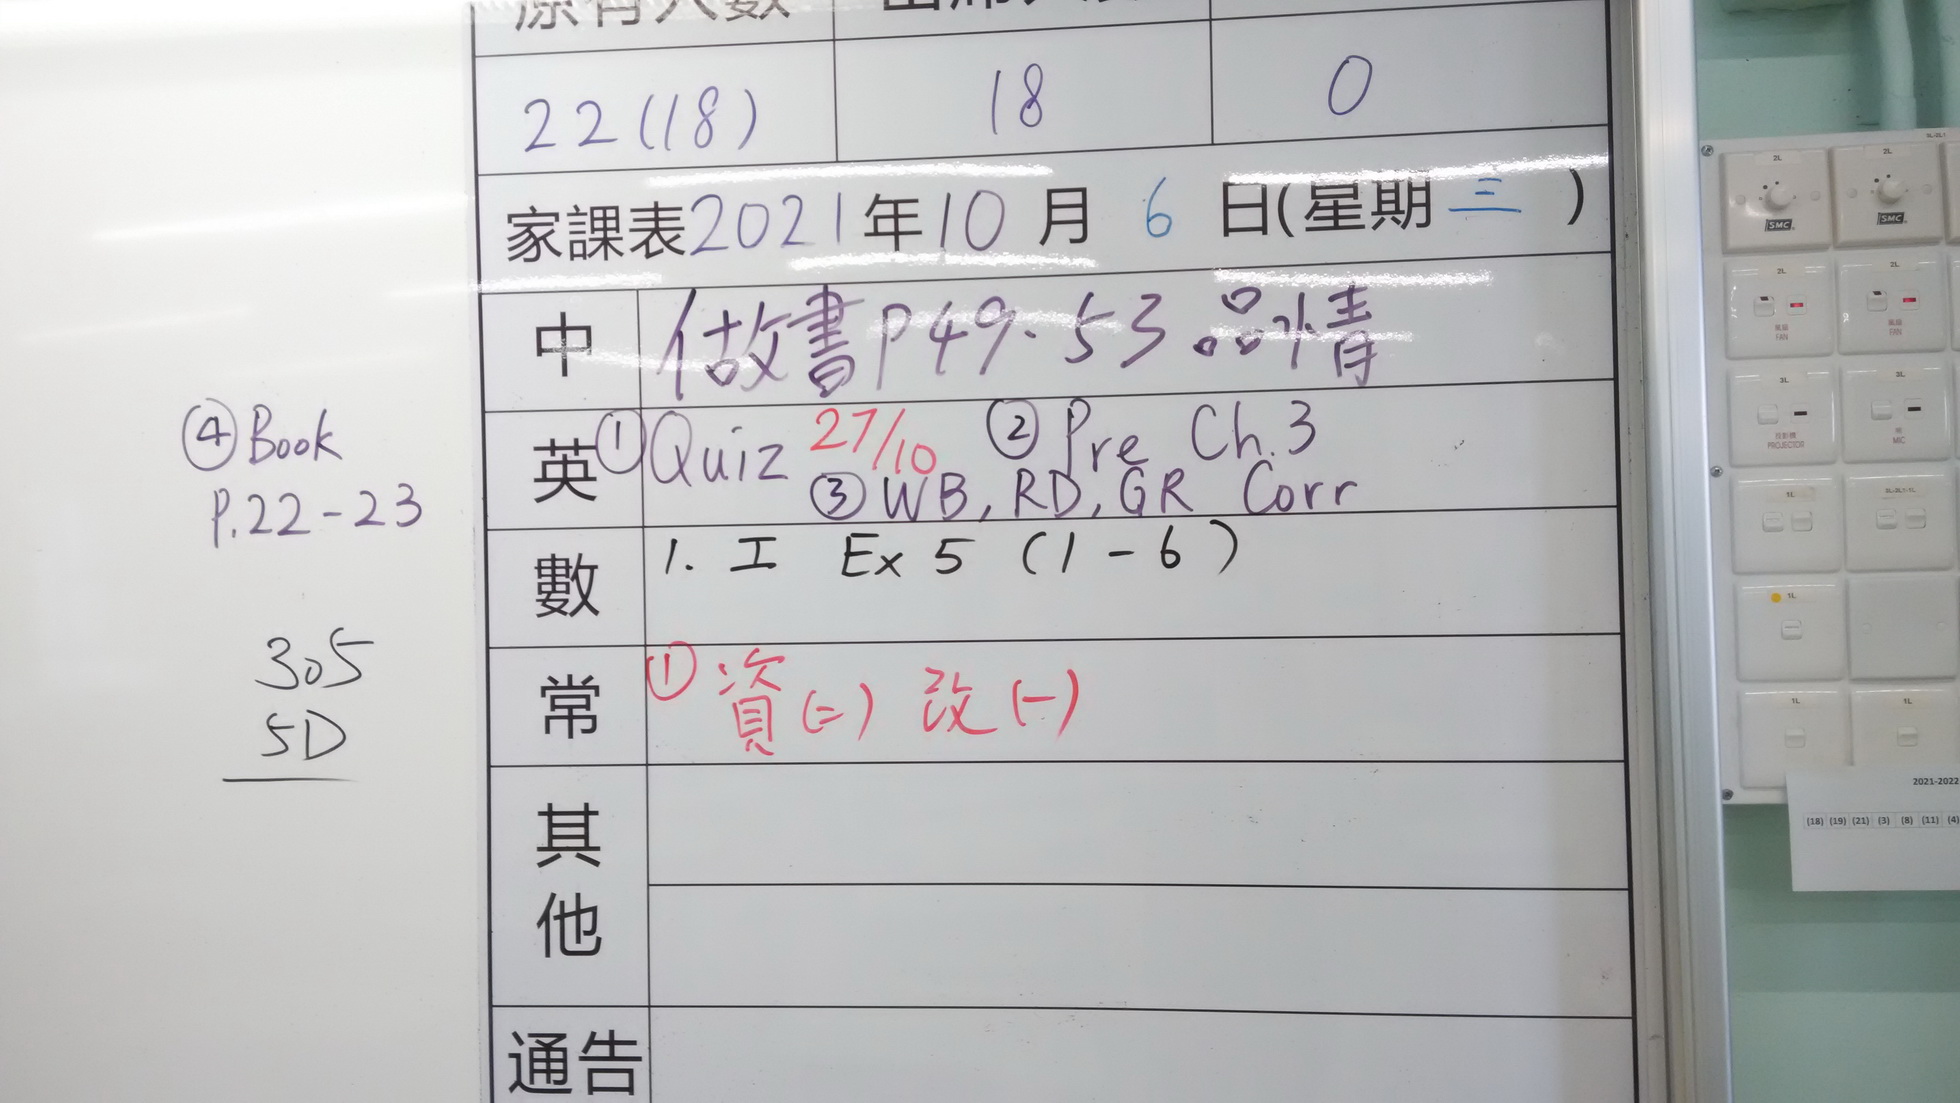 原有人數
22(18) 18 0
家課表2021年10月6日(星期三)
中 做書P49-53 品情
英 ①Quiz 27/10 ②Pre Ch.3
③WB, RD, GR Corr
④Book
P.22-23
數 1. 工 Ex 5 (1-6)
305
5D
常 ①資(二) 改(一)
其他
通告
2L
2L
SMC
SMC
2L
2L
風扇
FAN
風扇
FAN
3L
3L
投影機
PROJECTOR
咪
MIC
1L
3L-2L1-1L
1L
1L
1L
2021-2022
(18) (19) (21) (3) (8) (11) (4)